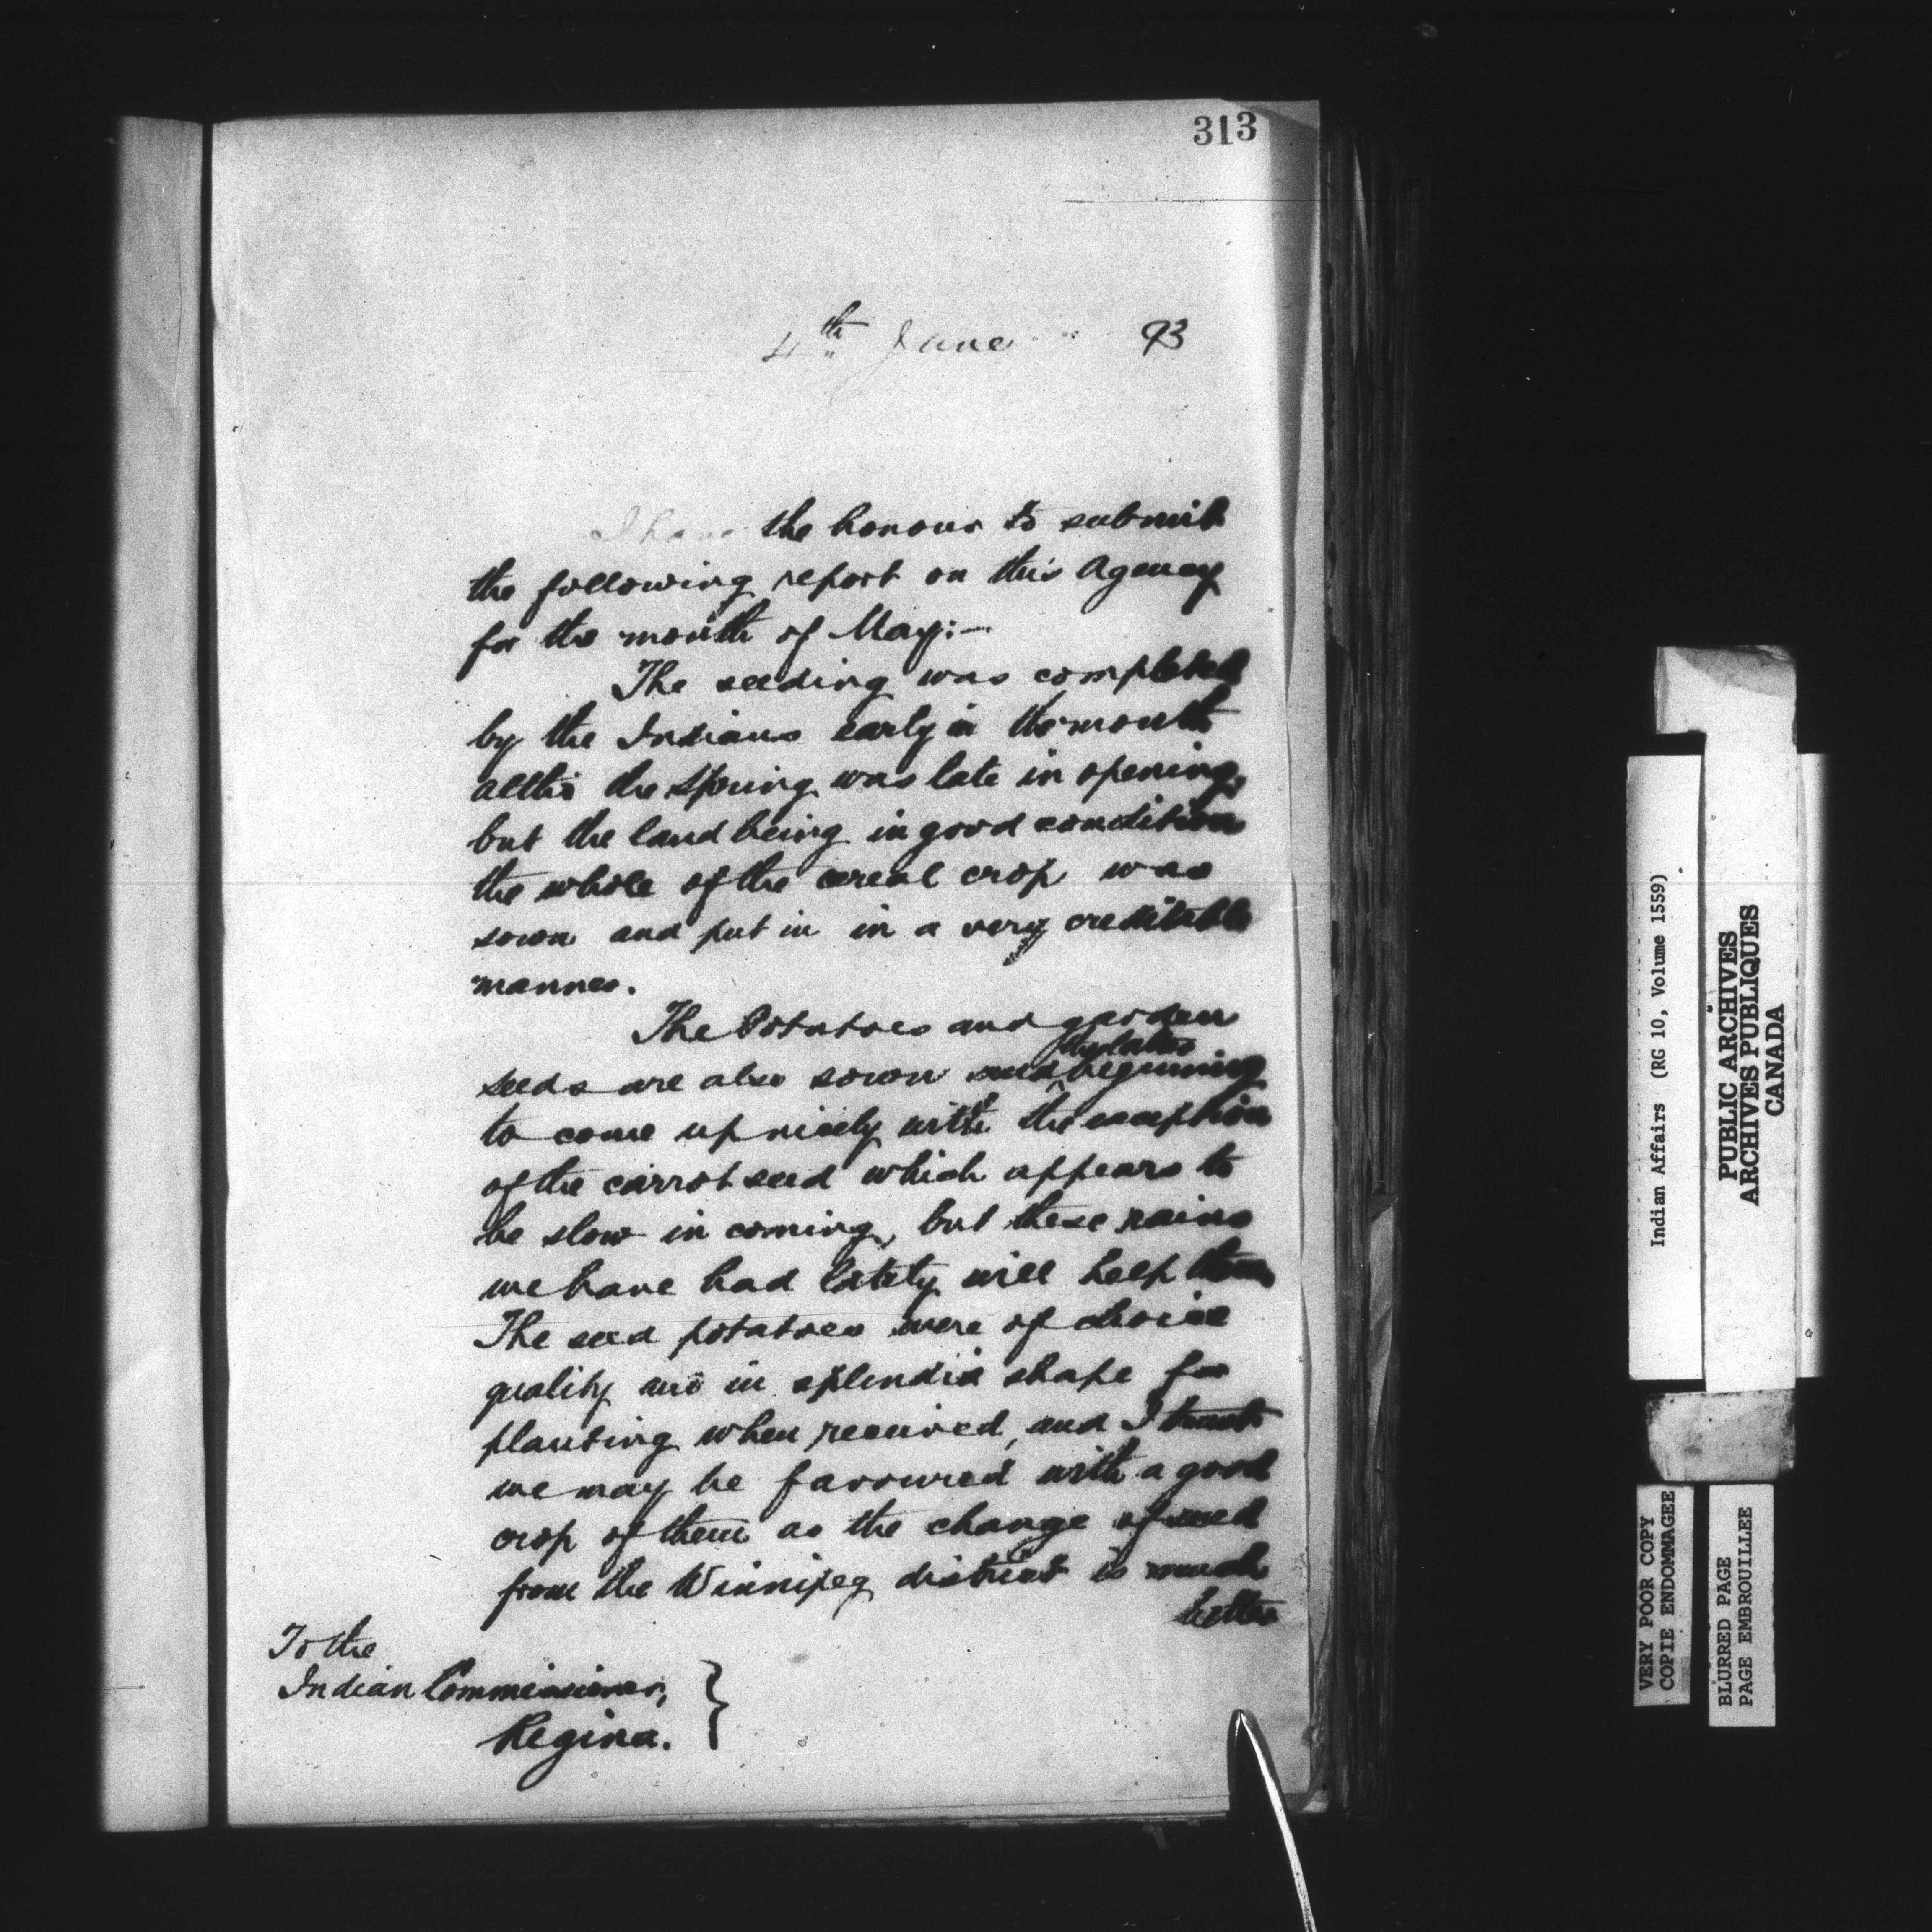 313
4th June 93
I have the honour to submit
the following report on this Agency
for the month of May:—
The seeding was completed
by the Indians early in the month
altho the spring was late in opening,
but the land being in good condition
the whole of the cereal crop was
sown and put in in a very creditable
manner.
The Potatoes and garden
the latter
seeds are also sown and beginning
to come up nicely with the exception
of the carrot seed which appears to
be slow in coming, but these rains
we have had lately will help them
The seed potatoes were of choice
quality and in splendid shape for
planting when received, and I trust
we may be favoured with a good
crop of them as the change of seed
from the Winnipeg district is much
better
To the
Indian Commissioner,
Regina.
Indian Affairs (RG 10, Volume 1559)
PUBLIC ARCHIVES
ARCHIVES PUBLIQUES
CANADA
VERY POOR COPY
COPIE ENDOMMAGEE
BLURRED PAGE
PAGE EMBROUILLEE